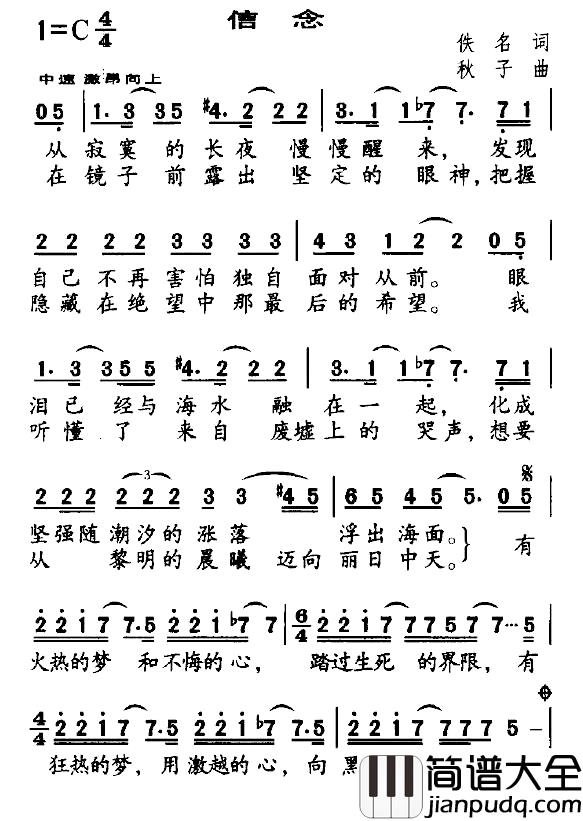 信念
1=C 4/4
佚名 词
秋子 曲
中速 激昂向上
0 5 | 1. 3 3 5 #4. 2 2 2 | 3. 1 1 b7 7. 7 1 |
从寂寞的长夜 慢慢醒来, 发现
在镜子前露出 坚定的眼神, 把握
2 2 2 2 3 3 3 3 | 4 3 1 2 2 0 5 |
自己不再害怕独自 面对从前。 眼
隐藏在绝望中那最 后的希望。 我
1. 3 3 5 5 #4. 2 2 2 | 3. 1 1 b7 7. 7 1 |
泪已经与海水 融在一起, 化成
听懂了 来自 废墟上的哭声, 想要
2 2 2 2 2 2 3 3 #4 5 | 6 5 4 5 5. 0 5 |
坚强随潮汐的涨落 浮出海面。 有
从 黎明的晨曦 迈向丽日中天。
2 2 1 7 7. 5 2 2 1 b7 7 | 6/4 2 2 1 7 7 7 5 7 7 ··· 5 |
火热的梦 和不悔的心, 踏过生死 的界限, 有
4/4 2 2 1 7 7. 5 2 2 1 b7 7. 5 | 2 2 1 7 7 7 5 - |
狂热的梦, 用激越的心, 向黑
简谱大全
jianpudq.com